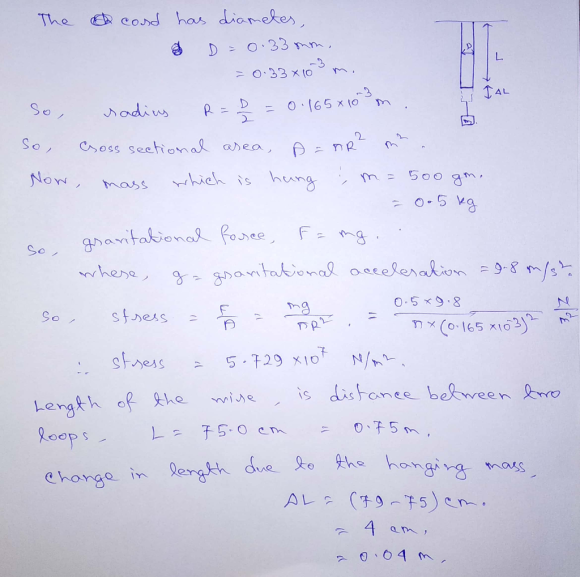 The cord has diameter,
D = 0.33 mm.
= 0.33 x 10⁻³ m.
So, radius R = D/2 = 0.165 x 10⁻³ m.
So, cross sectional area, A = πR² m².
Now, mass which is hung, m = 500 gm.
= 0.5 kg
So, gravitational force, F = mg.
where, g = gravitational acceleration = 9.8 m/s².
So, stress = F/A = mg/πR². = 0.5 x 9.8/π x (0.165 x 10⁻³)² N/m²
∴ stress = 5.729 x 10⁷ N/m².
Length of the wire, is distance between two
loops, L = 75.0 cm = 0.75 m.
Change in length due to the hanging mass,
ΔL = (79-75) cm.
= 4 cm.
= 0.04 m.
D
L
ΔL
m